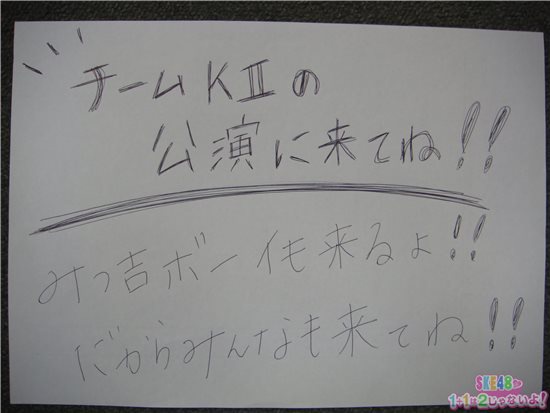 チームKⅡの
公演に来てね!!
みつ吉ボーイも来るよ!!
だからみんなも来てね!!
SKE48の
1+1は2じゃないよ!